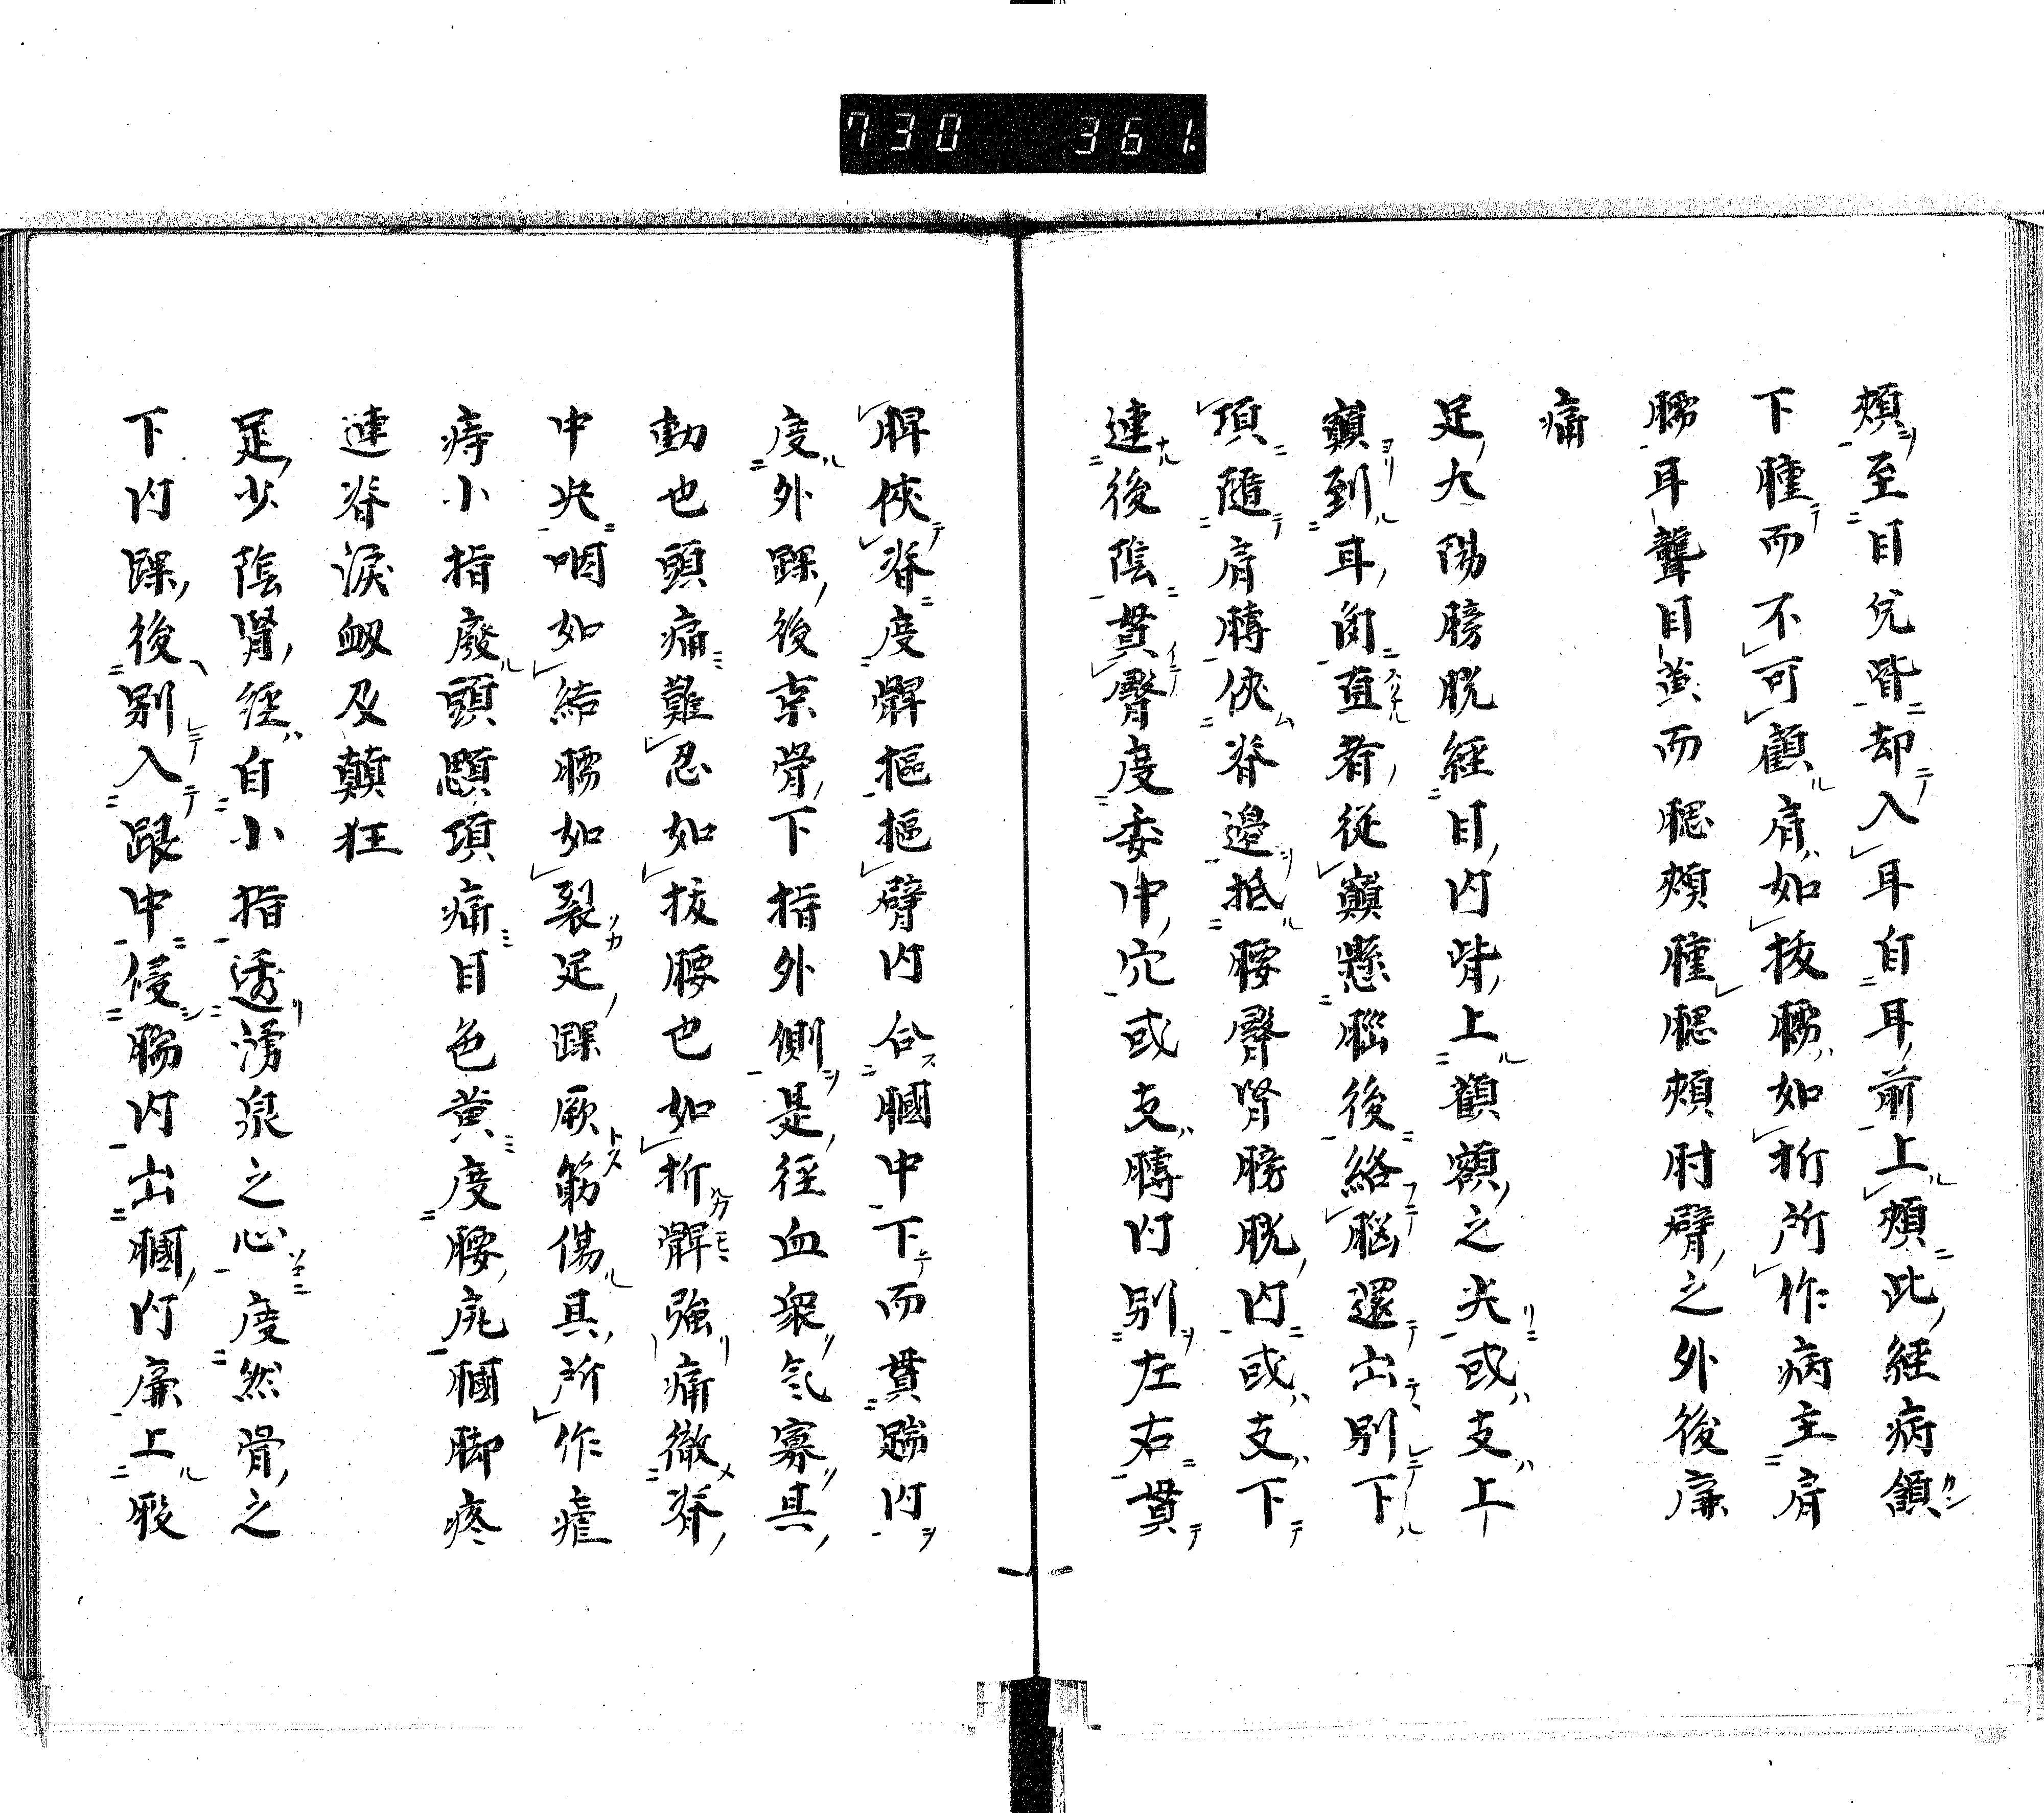 730 361.
頰至目兌眥却入耳自耳前上頰此経病頷
下腫而不可顧肩如拔臑如折所作病主肩
臑耳聾目黄而腮頰腫腮頰肘臂之外後廉
痛
足太陽膀胱経目内眥上顴額之尖或支上
巔到耳囟直者従巔懸脳後絡脳還出別下
項随肩膊俠脊邊抵腰臀腎膀胱内或支下
連後陰貫臀度委中穴或支膊内別左右貫
胛俠脊度髀樞樞臂内合膕中下而貫踹内
度外踝後京骨下指外側是径血衆気寡其
動也頭痛難忍如抜腰也如折髀強痛徹脊
中央咽如結臑如裂足踝厥筋傷其所作瘧
痔小指廢頭顖項痛目色黄度腰尻膕脚疼
連脊涙衂及巔狂
足少陰腎経自小指透湧泉之心度然骨之
下内踝後別入跟中侵腨内出膕内廉上股